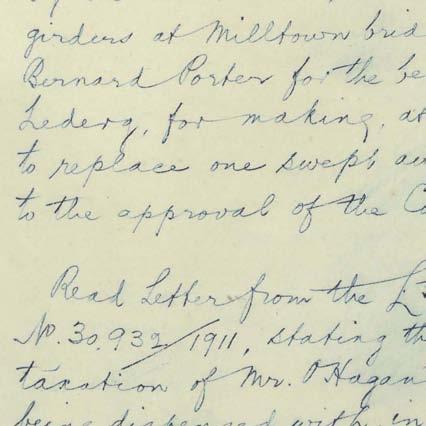 girders at Milltown brid
Bernard Porter for the be
Lederg, for making, at
to replace one swept aw
to the approval of the Co
Read Letter from the L
No. 30,932/1911, stating th
taxation of Mr. O'Hagan
being dispensed with in